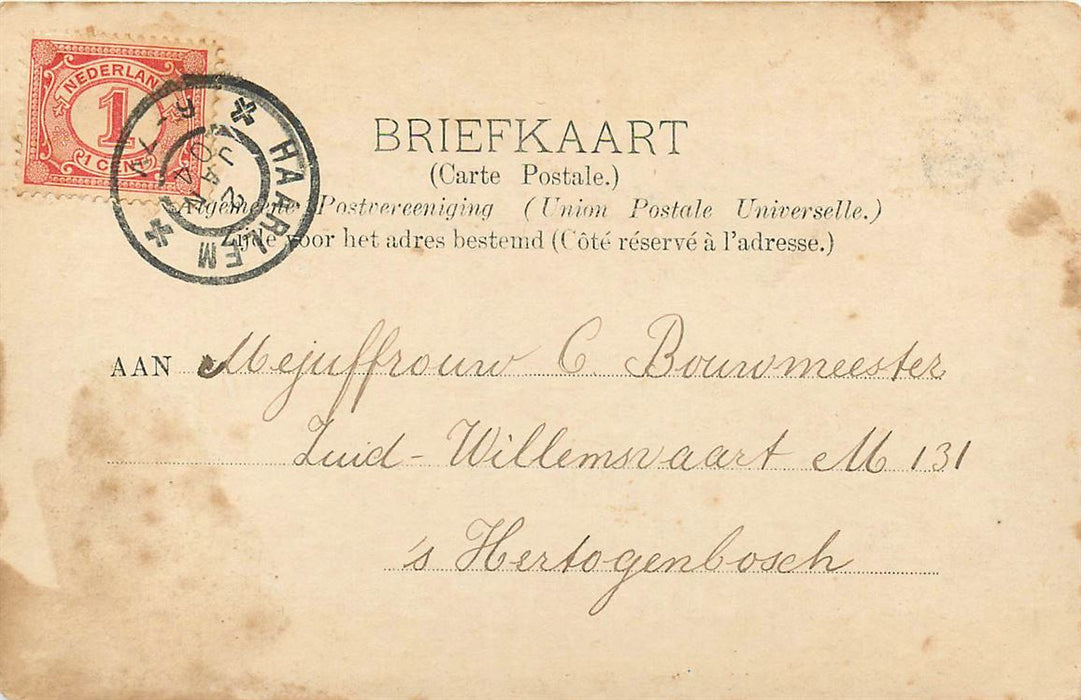 NEDERLAND
1
1 CENT
HAARLEM
2 JAN
04
BRIEFKAART
(Carte Postale.)
Algemeene Postvereeniging (Union Postale Universelle.)
Zijde voor het adres bestemd (Côté réservé à l'adresse.)
AAN Mejuffrouw C. Bouwmeester
Zuid-Willemsvaart M 131
's Hertogenbosch